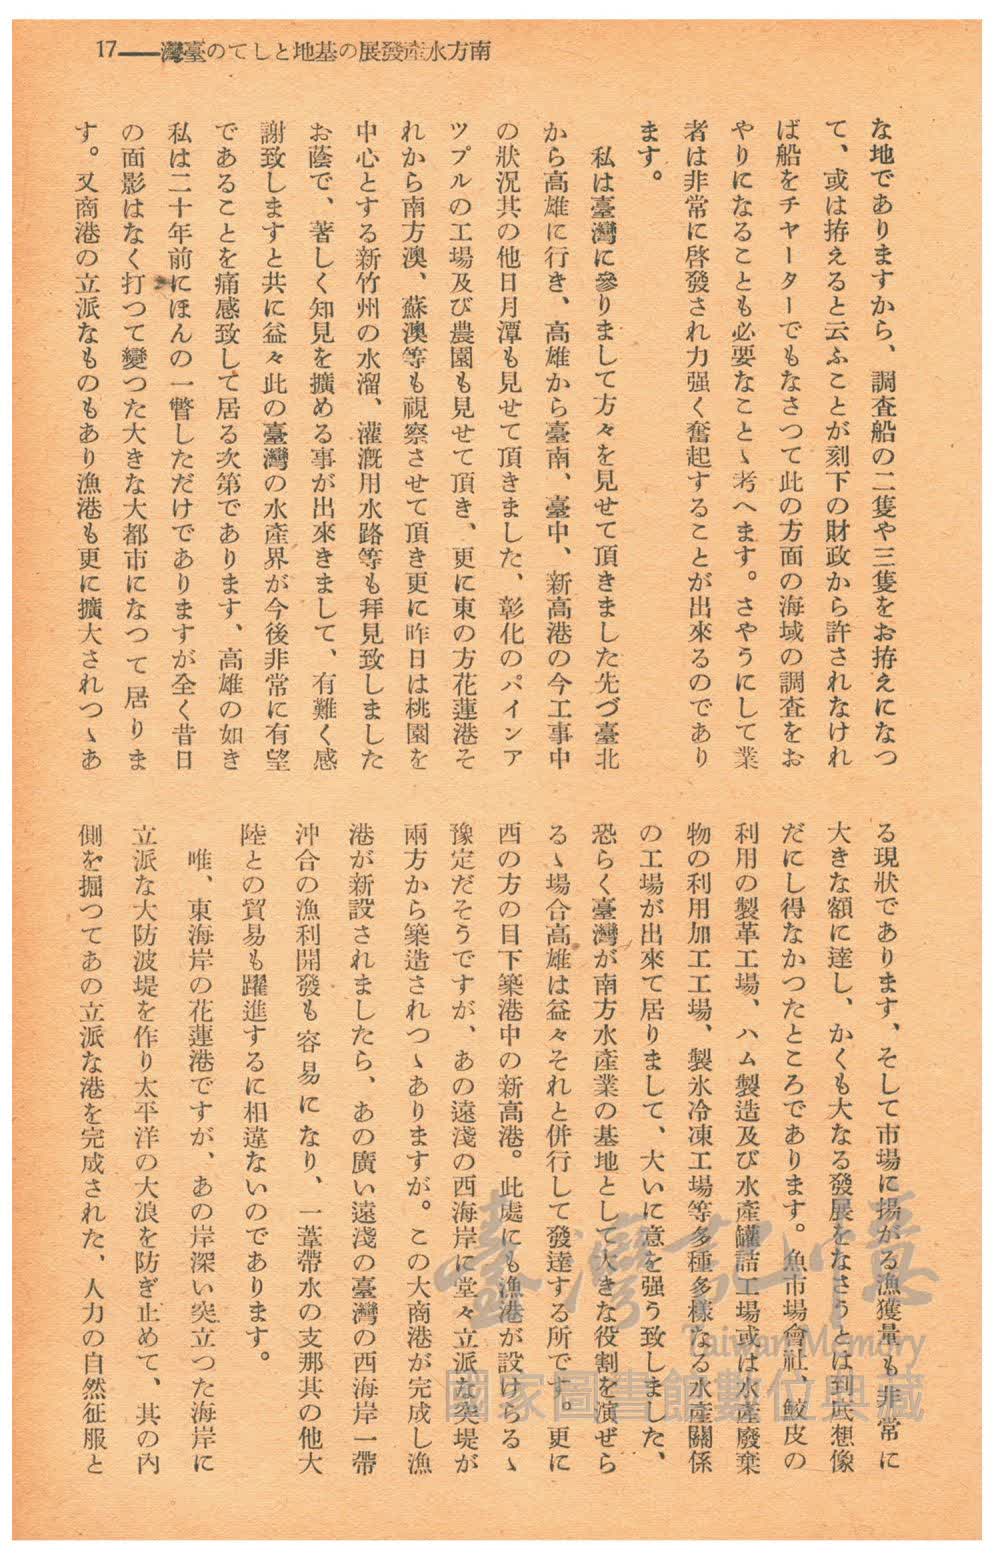 南方水產發展の基地としての臺灣——17
な地でありますから、調査船の二隻や三隻をお拵えになつ
て、或は拵えると云ふことが刻下の財政から許されなけれ
ば船をチヤーターでもなさつて此の方面の海域の調査をお
やりになることも必要なことゝ考へます。さやうにして業
者は非常に啓發され力强く奮起することが出來るのであり
ます。
私は臺灣に參りまして方々を見せて頂きました先づ臺北
から高雄に行き、高雄から臺南、臺中、新高港の今工事中
の狀況其の他日月潭も見せて頂きました、彰化のパインア
ツプルの工場及び農園も見せて頂き、更に東の方花蓮港そ
れから南方澳、蘇澳等も視察させて頂き更に昨日は桃園を
中心とする新竹州の水溜、灌漑用水路等も拜見致しました
お蔭で、著しく知見を擴める事が出來きまして、有難く感
謝致しますと共に益々此の臺灣の水產界が今後非常に有望
であることを痛感致して居る次第であります、高雄の如き
私は二十年前にほんの一瞥しただけでありますが全く昔日
の面影はなく打つて變つた大きな大都市になつて居りま
す。又商港の立派なものもあり漁港も更に擴大されつゝあ
る現狀であります、そして市場に揚がる漁獲量も非常に
大きな額に達し、かくも大なる發展をなさうとは到底想像
だにし得なかつたところであります。魚市場會社、鮫皮の
利用の製革工場、ハム製造及び水產罐詰工場或は水產廢棄
物の利用加工工場、製氷冷凍工場等多種多樣なる水產關係
の工場が出來て居りまして、大いに意を强う致しました、
恐らく臺灣が南方水產業の基地として大きな役割を演ぜら
るゝ場合高雄は益々それと併行して發達する所です。更に
西の方の目下築港中の新高港。此處にも漁港が設けらるゝ
豫定だそうですが、あの遠淺の西海岸に堂々立派な突堤が
兩方から築造されつゝありますが。この大商港が完成し漁
港が新設されましたら、あの廣い遠淺の臺灣の西海岸一帶
沖合の漁利開發も容易になり、一葦帶水の支那其の他大
陸との貿易も躍進するに相違ないのであります。
唯、東海岸の花蓮港ですが、あの岸深い突立つた海岸に
立派な大防波堤を作り太平洋の大浪を防ぎ止めて、其の內
側を掘つてあの立派な港を完成された、人力の自然征服と
臺灣記憶
Taiwan Memory
國家圖書館數位典藏